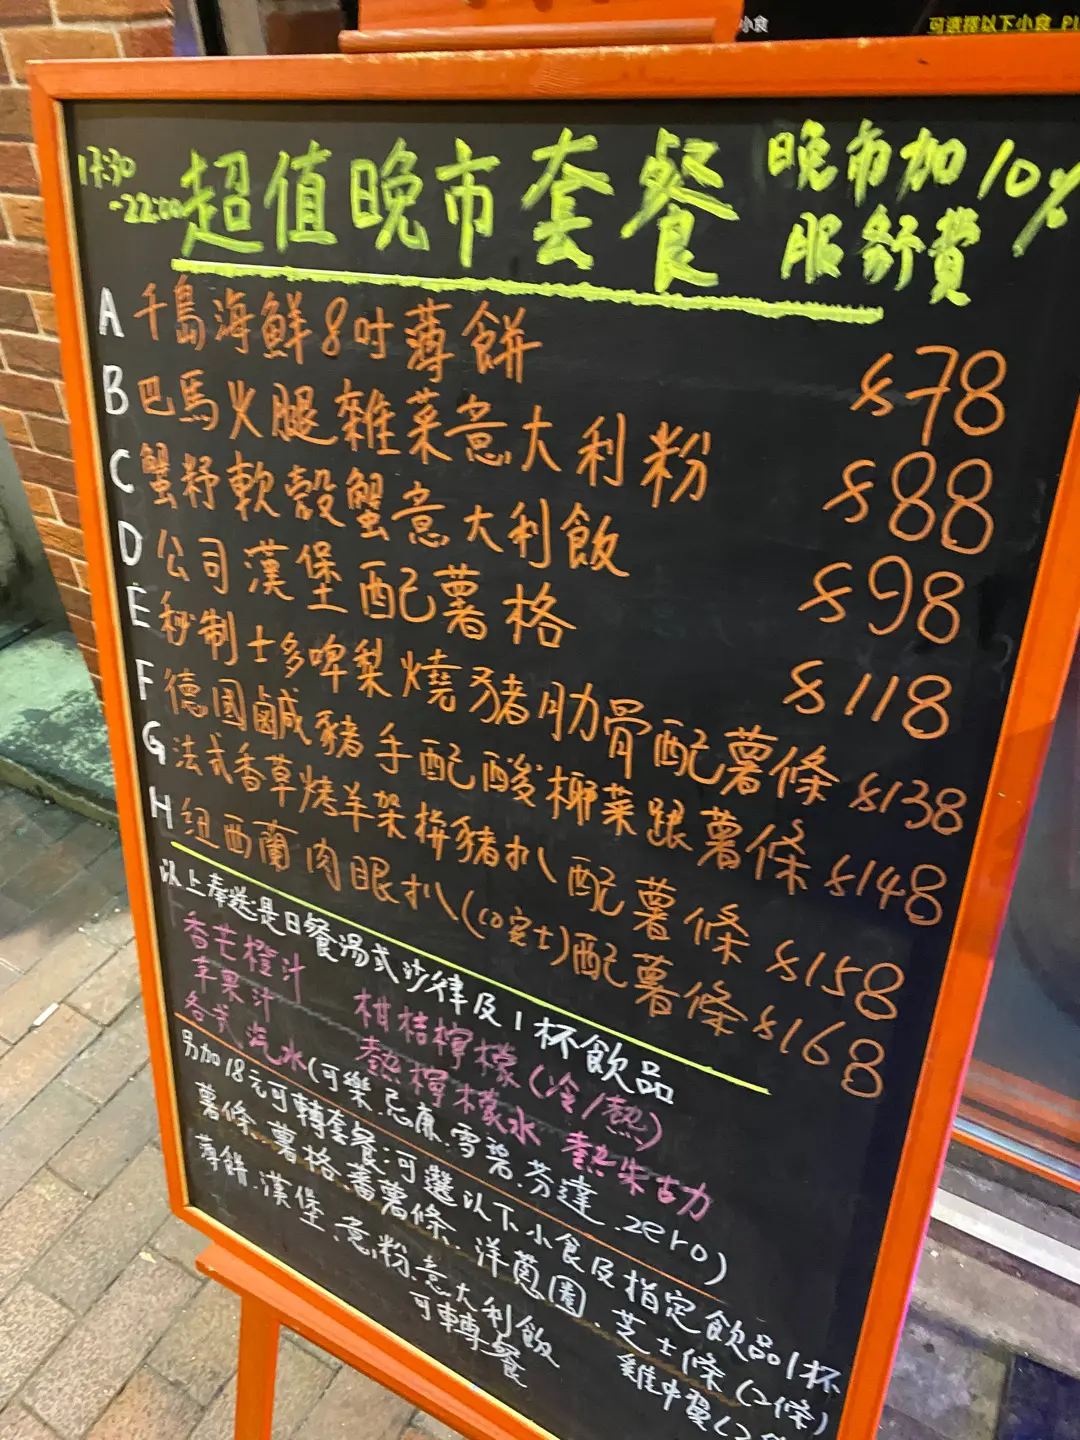 小食
可選擇以下小食
17:30
-22:00
超值晚市套餐
晚市加10%
服務費
A 千島海鮮8吋薄餅 $78
B 巴馬火腿雜菜意大利粉 $88
C 蟹籽軟殼蟹意大利飯 $98
D 公司漢堡配薯格 $118
E 秘制士多啤梨燒豬肋骨配薯條 $138
F 德國鹹豬手配酸椰菜跟薯條 $148
G 法式香草烤羊架拼豬扒配薯條 $158
H 紐西蘭肉眼扒(10安士)配薯條 $168
以上奉送是日餐湯或沙律及1杯飲品
香芒橙汁 柑桔檸檬(冷/熱)
苹果汁 熱檸檬水 熱朱古力
各式汽水(可樂.忌廉.雪碧.芬達.zero)
另加18元可轉套餐:可選以下小食及指定飲品1杯
薯條.薯格.蕃薯條.洋葱圈.芝士條(2條)
薄餅.漢堡.意粉.意大利飯 雞中翼(2
可轉餐